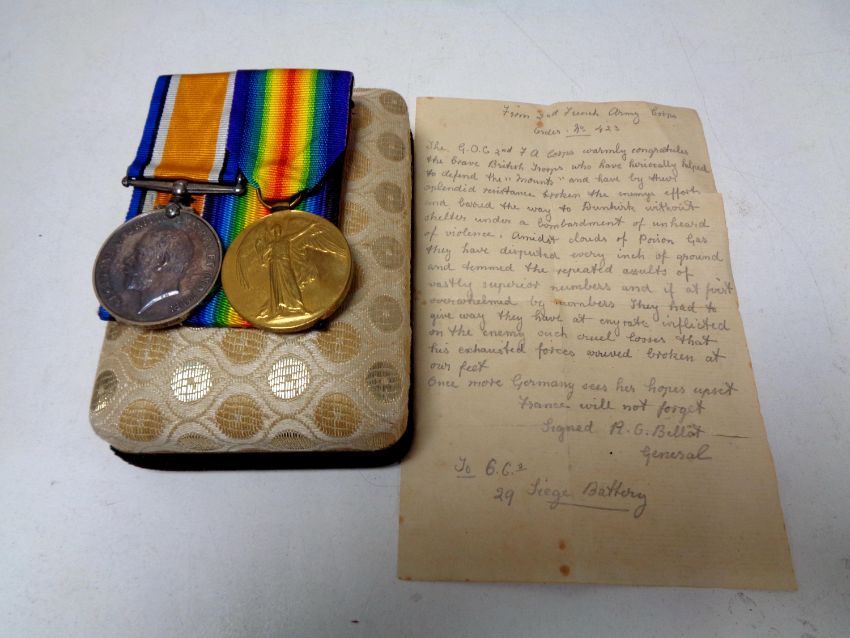 From 2nd French Army Corps
Order. No 423
The G.O.C 2nd F A Corps warmly congratules
the brave British Troops who have heriocally helped
to defend the "Mounts" and have by their
splendid resistance broken the enemys effort
and barred the way to Dunkirk without
shelter under a bombardment of unheard
of violence. Amidst clouds of Poison Gas
they have disputed every inch of ground
and temmed the repeated assults of
vastly superior numbers and if at first
overwhelmed by numbers They had to
give way they have at anyrate inflicted
on the enemy such cruel losses that
his exhausted forces broken at
our feet
Once more Germany sees her hopes upset
France will not forget
Signed R. G. Billot
General
To
29 Siege Battery